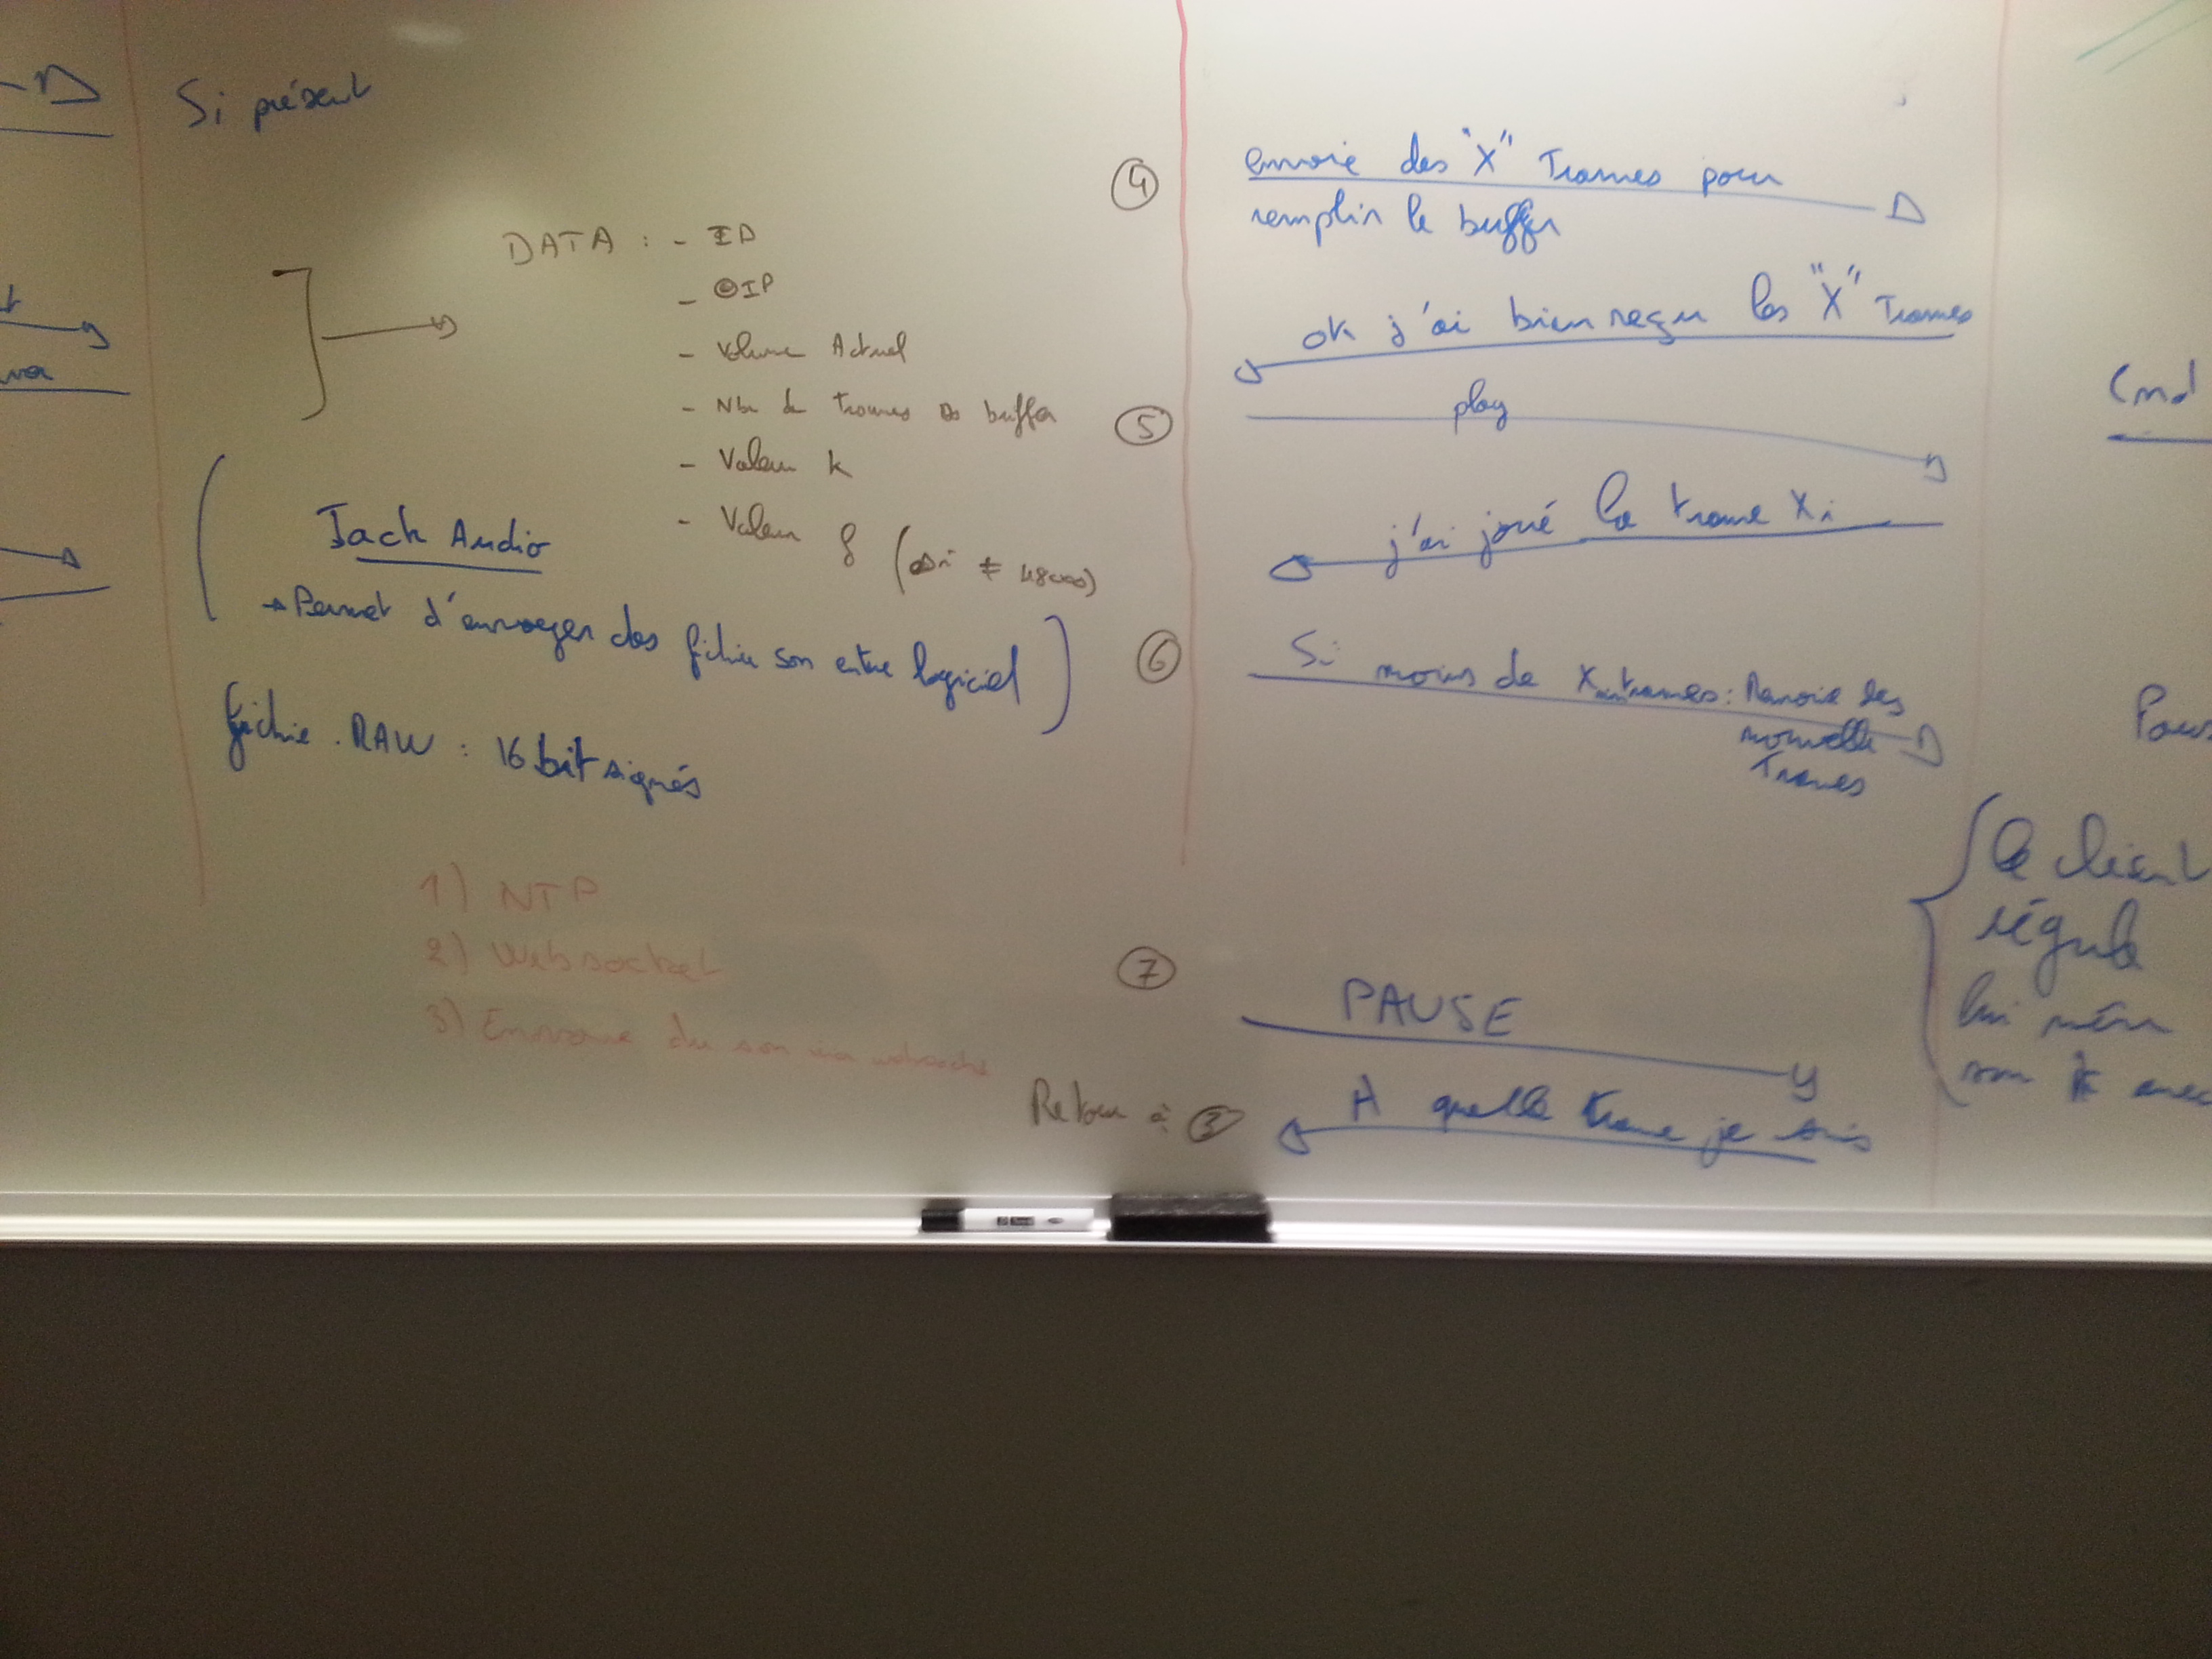 Si présent
DATA : - ID
- @IP
- Volume Actuel
- Nbr de trames ds buffer
- Valeur k
- Valeur f (si ≠ 48000)
Jack Audio
→ Permet d'envoyer des fichier son entre logiciel
fichier .RAW : 16 bit signés
1) NTP
2) Websocket
3) Envoie du son via websocket
④ envoie des "X" Trames pour
remplir le buffer
ok j'ai bien reçu les "X" Trames
⑤ play
j'ai joué la trame Xi
⑥ Si moins de Xmin trames : Renvoie des
nouvelle
Trames
⑦ PAUSE
Retour à ③
A quelle trame je suis
Cmd
Paus
le client
régule
lui même
son k avec